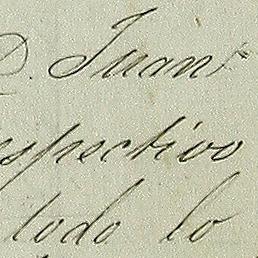 D. Juan
espectivo
todo lo